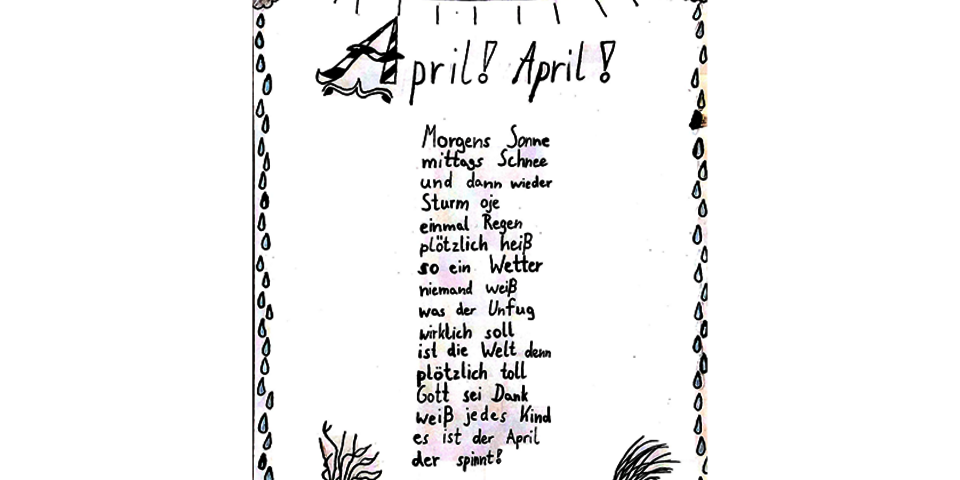 April! April!
Morgens Sonne
mittags Schnee
und dann wieder
Sturm oje
einmal Regen
plötzlich heiß
so ein Wetter
niemand weiß
was der Unfug
wirklich soll
ist die Welt denn
plötzlich toll
Gott sei Dank
weiß jedes Kind
es ist der April
der spinnt!